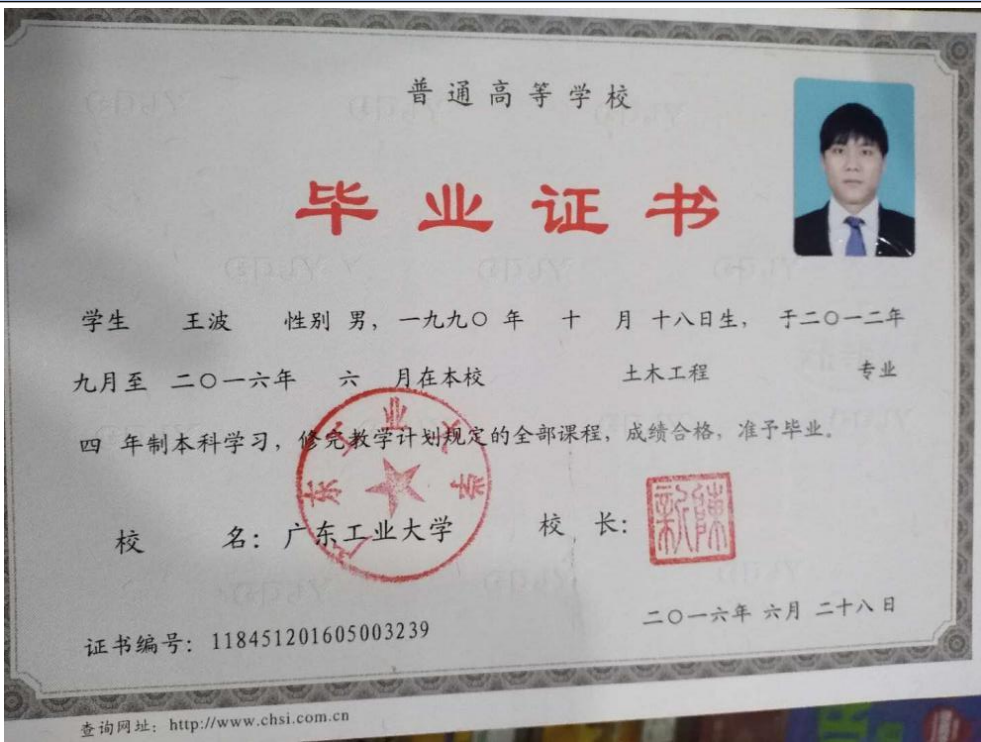 普通高等学校
毕业证书
学生 王波 性别 男，一九九〇年 十 月 十八日生，于二〇一二年
九月至 二〇一六年 六 月在本校 土木工程 专业
四 年制本科学习，修完教学计划规定的全部课程，成绩合格，准予毕业。
广东工业大学
校 名：广东工业大学 校 长：
证书编号：118451201605003239
二〇一六年 六月 二十八日
查询网址：http://www.chsi.com.cn